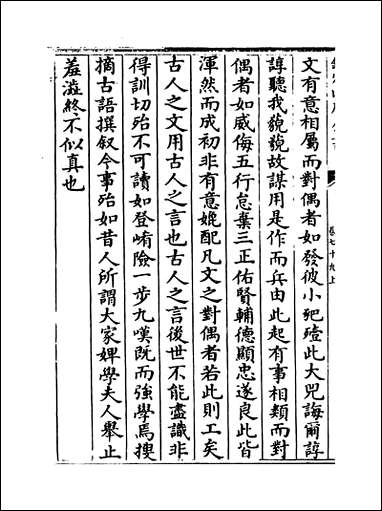 卷七十九上
文有意相屬而對偶者如發彼小豝殪此大兕誨爾諄
諄聽我藐藐故謀用是作而兵由此起有事相類而對
偶者如威侮五行怠棄三正佑賢輔德顯忠遂良此皆
渾然而成初非有意媲配凡文之對偶者若此則工矣
古人之文用古人之言也古人之言後世不能盡識非
得訓切殆不可讀如登崤險一步九嘆既而強學焉搜
摘古語撰叙今事殆如昔人所謂大家婢學夫人舉止
羞澁終不似真也